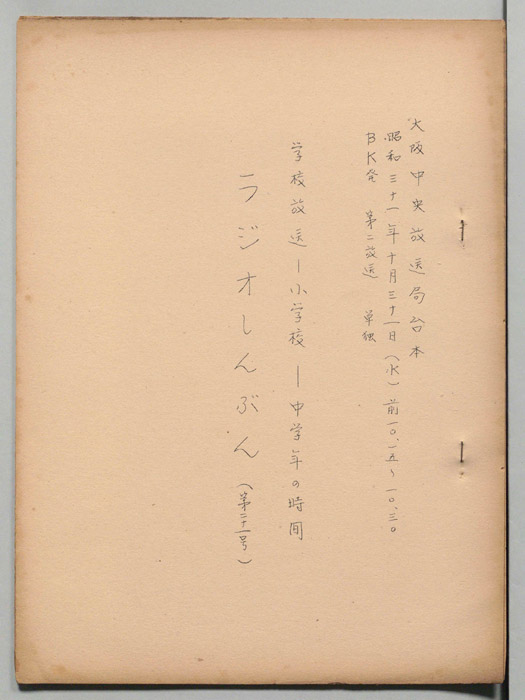 大阪中央放送局台本
昭和三十一年十月三十一日（水）前一〇、一五〜一〇、三〇
BK発 第二放送 単独
学校放送ー小学校ー中学年の時間
ラジオしんぶん（第二十一号）